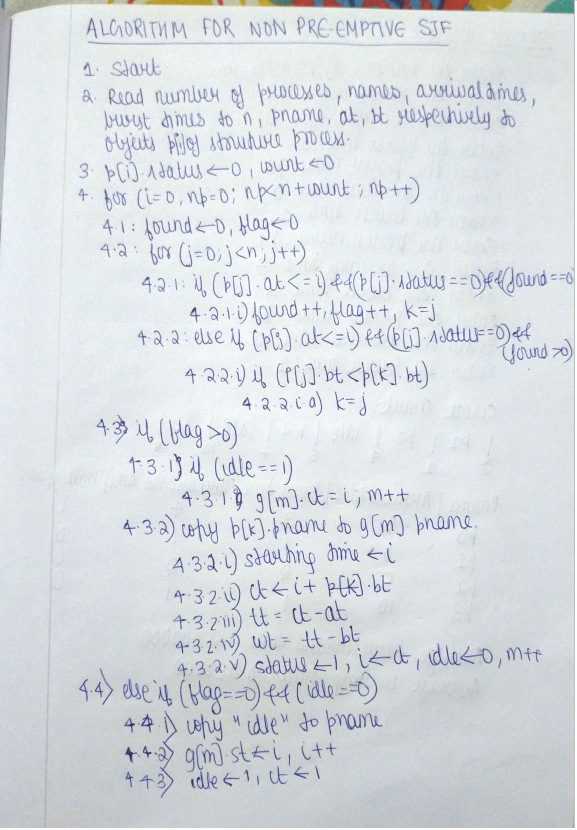 ALGORITHM FOR NON PRE-EMPTIVE SJF
1. Start
2. Read number of processes, names, arrival times,
burst times to n, pname, at, bt respectively to
objects p[i] of structure process.
3. p[i].status ← 0, count ← 0
4. for (i=0, np=0; np<n+count; np++)
4.1: found ← 0, flag ← 0
4.2: for (j=0; j<n; j++)
4.2.1: if (p[j].at <= i) && (p[j].status == 0) && (found == 0
4.2.1.i) found++, flag++, k=j
4.2.2: else if (p[j].at<=i) && (p[j].status==0) &&
(found >0)
4.2.2.i) if (P[j].bt < p[k].bt)
4.2.2.i.a) k=j
4.3) if (flag >0)
4.3.1) if (idle ==1)
4.3.1.i) g[m].ct = i, m++
4.3.2) copy p[k].pname to g[m].pname.
4.3.2.i) starting time ← i
4.3.2.ii) ct ← i + p[k].bt
4.3.2.iii) tt = ct - at
4.3.2.iv) wt = tt - bt
4.3.2.v) status ← 1, i ← ct, idle ← 0, m++
4.4) else if (flag==0) && (idle ==0)
4.4.1) copy "idle" to pname
4.4.2) g[m].st ← i, i++
4.4.3) idle ← 1, ct ← 1